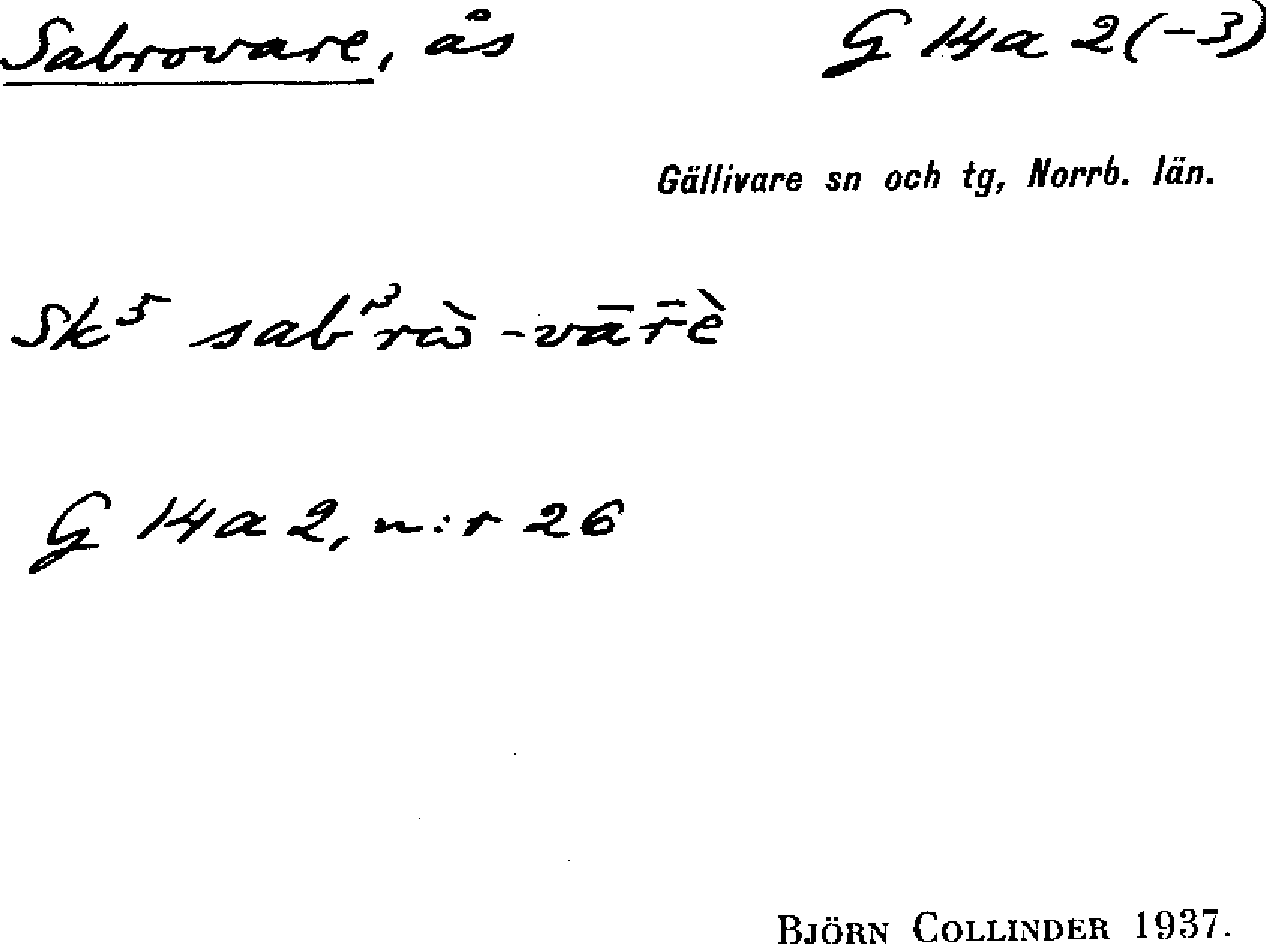 Sabrovare, ås G 14a 2(-3)
Gällivare sn och tg, Norrb. län.
Sk⁵ sabᵌrὼ -vār̄ὲ
G 14a 2, n:r 26
BJÖRN COLLINDER 1937.